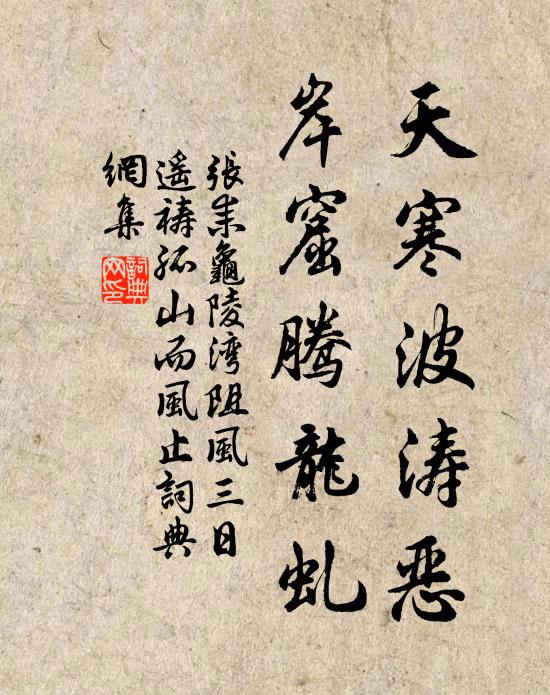 天寒波涛惡
岸窟腾龍虬
張耒龜陵湾阻風三日
遥祷孤山而風止詞典
網集
詞典網印